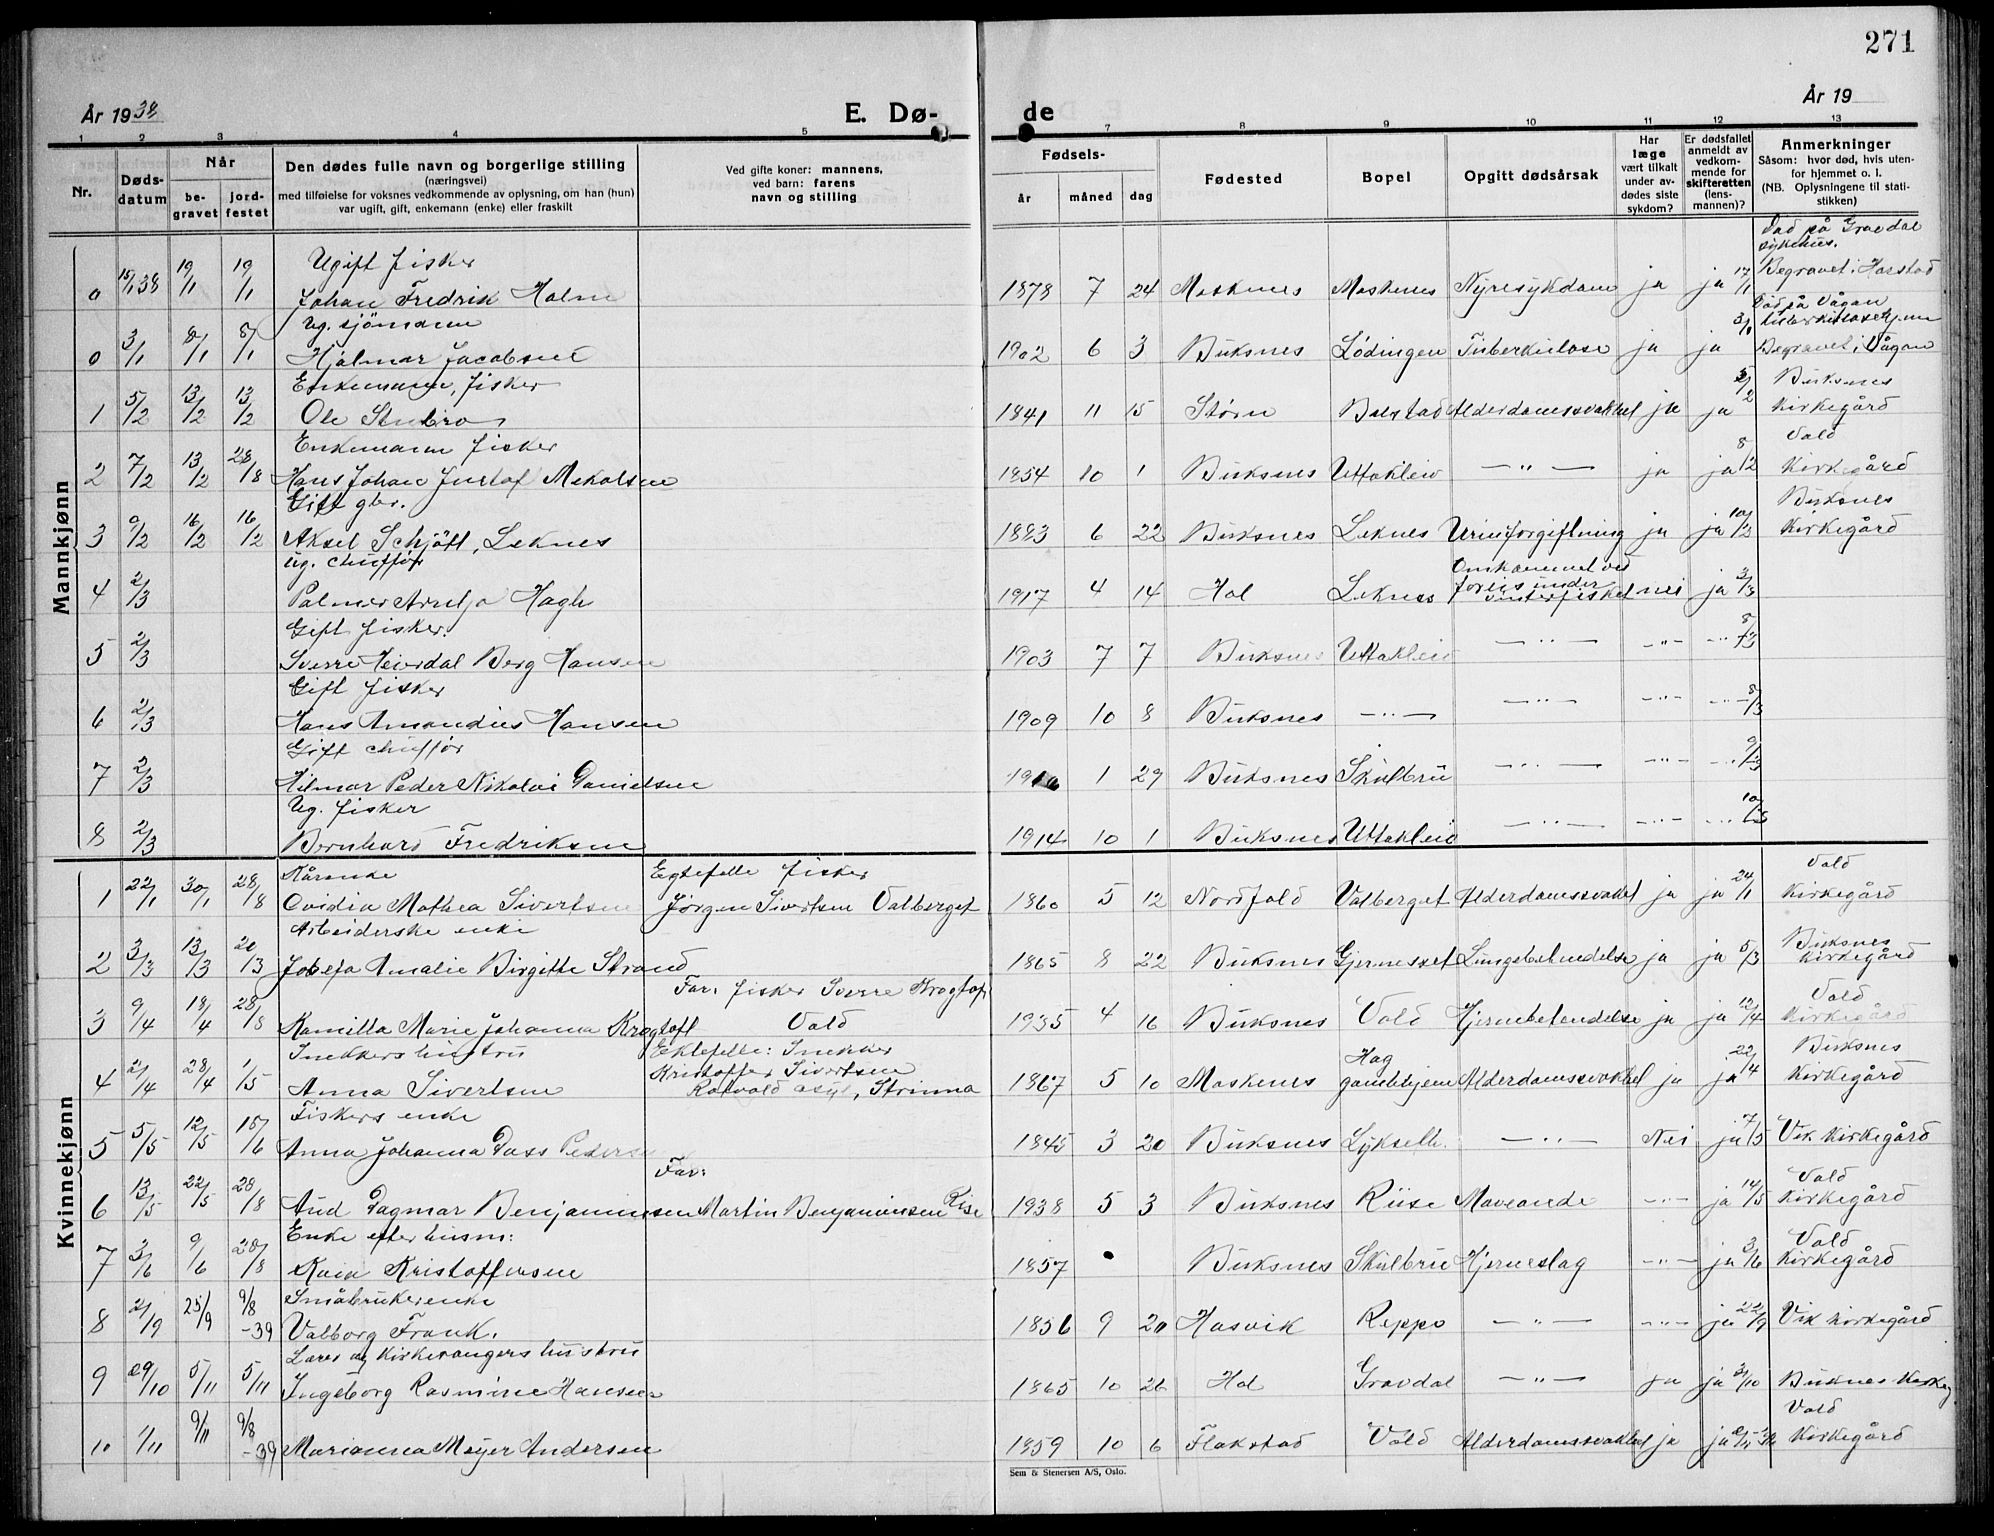 271
År 1938
E. Dø-
de
År 19
1 2 3 4 5 7 8 9 10 11 12 13
Nr.
Døds-
datum
Når
be-
gravet
jord-
festet
Den dødes fulle navn og borgerlige stilling
(næringsvei)
med tilføielse for voksnes vedkommende av oplysning, om han (hun)
var ugift, gift, enkemann (enke) eller fraskilt
Ved gifte koner: mannens,
ved barn: farens
navn og stilling
Fødsels-
år måned dag
Fødested
Bopel
Opgitt dødsårsak
Har
læge
vært tilkalt
under av-
dødes siste
sykdom?
Er dødsfallet
anmeldt av
vedkom-
mende for
skifteretten
(lens-
mannen)?
Anmerkninger
Såsom: hvor død, hvis uten-
for hjemmet o. l.
(NB. Oplysningene til stati-
stikken)
Mannkjønn
Ugift fisker Død på Gravdal
sykehus.
0 15/1 38 19/1 19/1 Johan Fredrik Holm 1878 7 24 Moskenes Moskenes Nyresykdom ja ja 17/1 Begravet i Harstad
Ug. sjömann Død på Vågan
0 3/1 8/1 8/1 Hjalmar Jacobsen 1902 6 3 Buksnes Lödingen Tuberkulose ja ja 3/1 Begravet i Vågan
Enkemann, fisker Buksnes
1 5/2 13/2 13/2 Ole Stubro 1841 11 15 Stören Ballstad Alderdomssvakhet ja ja 5/2 Kirkegård
Enkemann fisker Vold
2 7/2 13/2 28/8 Hans Johan Gustaf Mekalsen 1854 10 1 Buksnes Uttakleiv —"— ja ja 8/2 Kirkegård
Gift gbr. Buksnes
3 9/2 16/2 16/2 Aksel Schjött, Leknes 1883 6 22 Buksnes Leknes Urinforgiftning ja ja 10/2 Kirkegård
ug. chufför Omkommet ved
forlis under
4 2/3 Palmer Hagh 1917 4 14 Hol Leknes vinterfisket nei ja 3/3
Gift fisker.
5 2/3 Sverre Heierdal Berg Hansen 1903 7 7 Buksnes Uttakleiv —"— —"— —"— 8/3
Gift fisker
6 2/3 Hans Amandius Hansen 1909 10 8 Buksnes —"— —"— —"— —"— 8/3
Gift chufför
7 2/3 Hilmar Peder Nikolai Danielsen 1 29 Buksnes Skulbru —"— —"— —"— 9/3
Ug. fisker
8 2/3 Bernhard Fredriksen 1914 10 1 Buksnes Uttakleiv —"— —"— —"— 10/3
Kvinnekjønn
Kårenke Egtefelle fisker Vold
1 22/1 30/1 28/8 Ovidia Mathea Sivertsen Jörgen Sivertsen Valberget 1860 5 12 Nordfold Valberget Alderdomssvakhet ja ja 24/1 Kirkegård
Arbeiderske enke Buksnes
2 3/3 13/3 20/3 Josefa Amalie Birgitte Strand 1865 8 22 Buksnes Gjerneset Lungebetendelse ja ja 5/3 Kirkegård
Far: fisker Sverre Krogtoft Vold
3 9/4 18/4 28/8 Kamilla Marie Johanna Krogtoft Vold 1935 4 16 Buksnes Vold Hjernebetendelse ja ja 12/4 Kirkegård
Snekkers hustru Ektefelle: Snekker Hag Buksnes
Kristoffer Sivertsen
4 2/4 28/4 1/5 Anna Sivertsen Rotvold asyl, Strinna 1867 5 10 Moskenes gamlehjem Alderdomssvakhet ja ja 22/4 Kirkegård
Fiskers enke
5 5/5 12/5 15/6 Anna Johanna Dass Peders 1845 3 20 Buksnes Lykselh. —"— Nei ja 7/5 Vik Kirkegård
Far: Vold
6 13/5 22/5 28/8 Aud Dagmar Benjaminsen Martin Benjaminsen Rise 1938 5 3 Buksnes Riise Maveonde —"— ja 14/5 Kirkegård
Enke efter husm: Vold
7 3/6 9/6 28/8 Kaia Kristoffersen 1857 Buksnes Skulbru Hjerneslag —"— ja 3/6 Kirkegård
Småbrukerenke
8 2/9 25/9 9/8 -39 Valborg Frank. 1856 9 20 Hasvik Reppe —"— —"— ja 22/9 Vik kirkegård
Lærer og Kirkesangers hustru
9 29/10 5/11 5/11 Ingeborg Rasmine Hansen 1865 10 26 Hol Gravdal —"— ja ja 31/10 Buksnes Kirkeg
Vold
10 1/11 9/11 9/8 -39 Marianna Meyer Andersen 1859 10 6 Flakstad Vold Alderdomssvakhet ja ja Kirkegård
Sem & Stenersen A/S, Oslo.